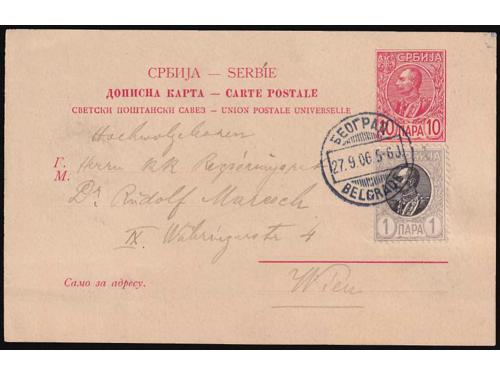 СРБИЈА — SERBIE
ДОПИСНА КАРТА — CARTE POSTALE
СВЕТСКИ ПОШТАНСКИ САВЕЗ — UNION POSTALE UNIVERSELLE
СРБИЈА
10 ПАРА 10
БЕОГРАД
27.9.06.5-6
BELGRADE
Hochwohlgeboren
Г.
М.
Herrn KK
Dr Rudolf Maresch
IX Währingerstr 4
1 ПАРА 1
Wien
Само за адресу.